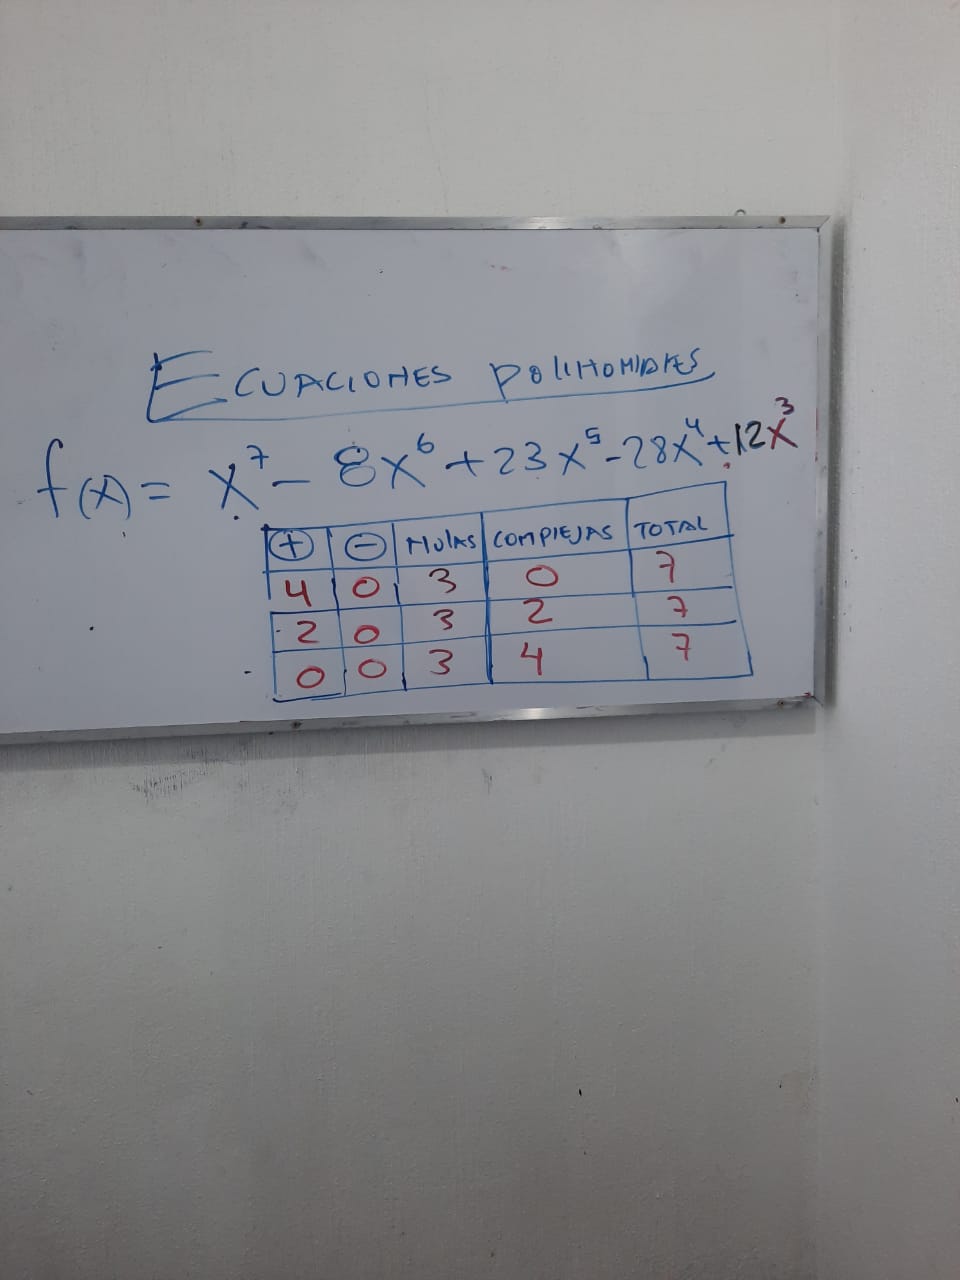 ECUACIONES POLINOMIALES
f(x) = x⁷ - 8x⁶ + 23x⁵ - 28x⁴ + 12x³
+ - NULAS COMPLEJAS TOTAL
4 0 3 0 7
2 0 3 2 7
0 0 3 4 7